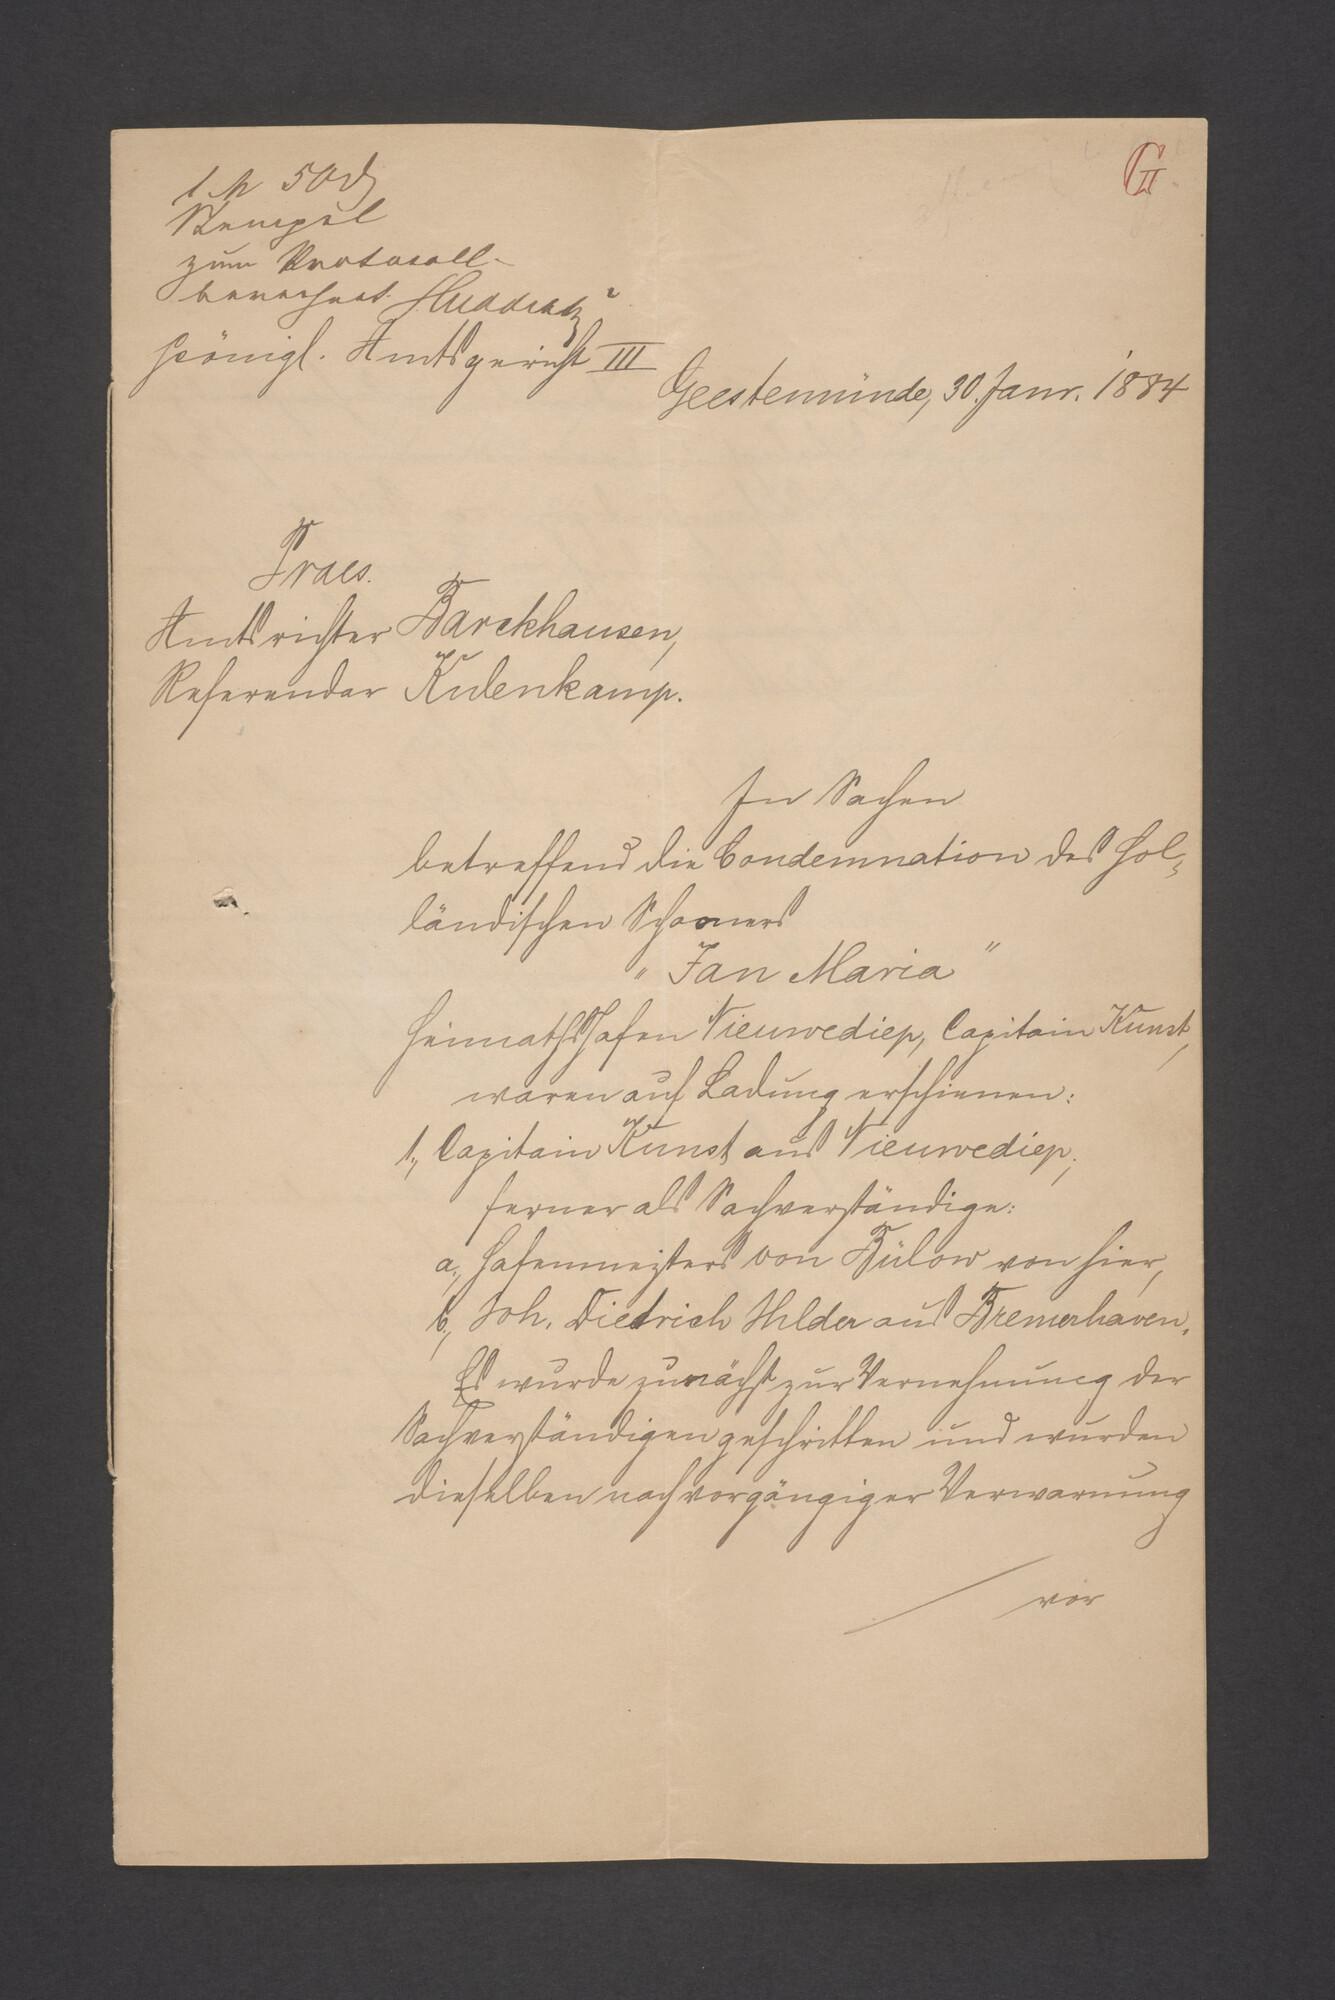 G II.
1 M 50 ₰
Stempel
zum Protocoll
berechnet.
Königl. Amtsgericht III
Geestemünde, 30. Janr. 1884
Praes.
Amtsrichter Barckhausen,
Referendar Kulenkamp.
In Sachen
betreffend die Condemnation des hol-
ländischen Schooners
"Jan Maria"
Heimathshafen Nieuwediep, Capitain Kunst,
waren auf Ladung erschienen:
1., Capitain Kunst aus Nieuwediep,
ferner als Sachverständige:
a., Hafenmeisters von Bülow von hier,
b., Joh. Dietrich Ihlder aus Bremerhaven.
Es wurde zunächst zur Vernehmung der
Sachverständigen geschritten und wurden
dieselben nach vorgängiger Verwarnung
vor